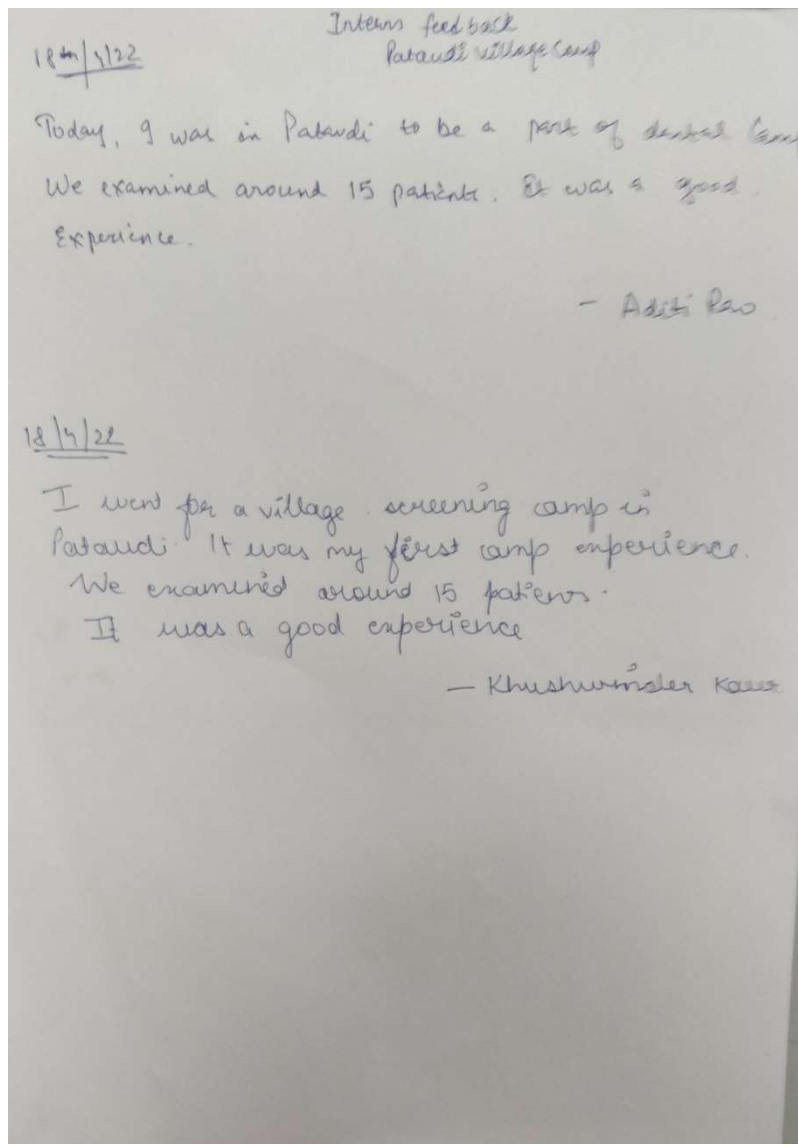 Interns feedback
Pataudi village Camp
18th/4/22
Today, I was in Pataudi to be a part of dental Camp
We examined around 15 patients. It was a good
Experience.
- Aditi Rao
18/4/22
I went for a village screening camp in
Pataudi. It was my first camp experience.
We examined around 15 patients.
It was a good experience
- Khushwinder Kaur